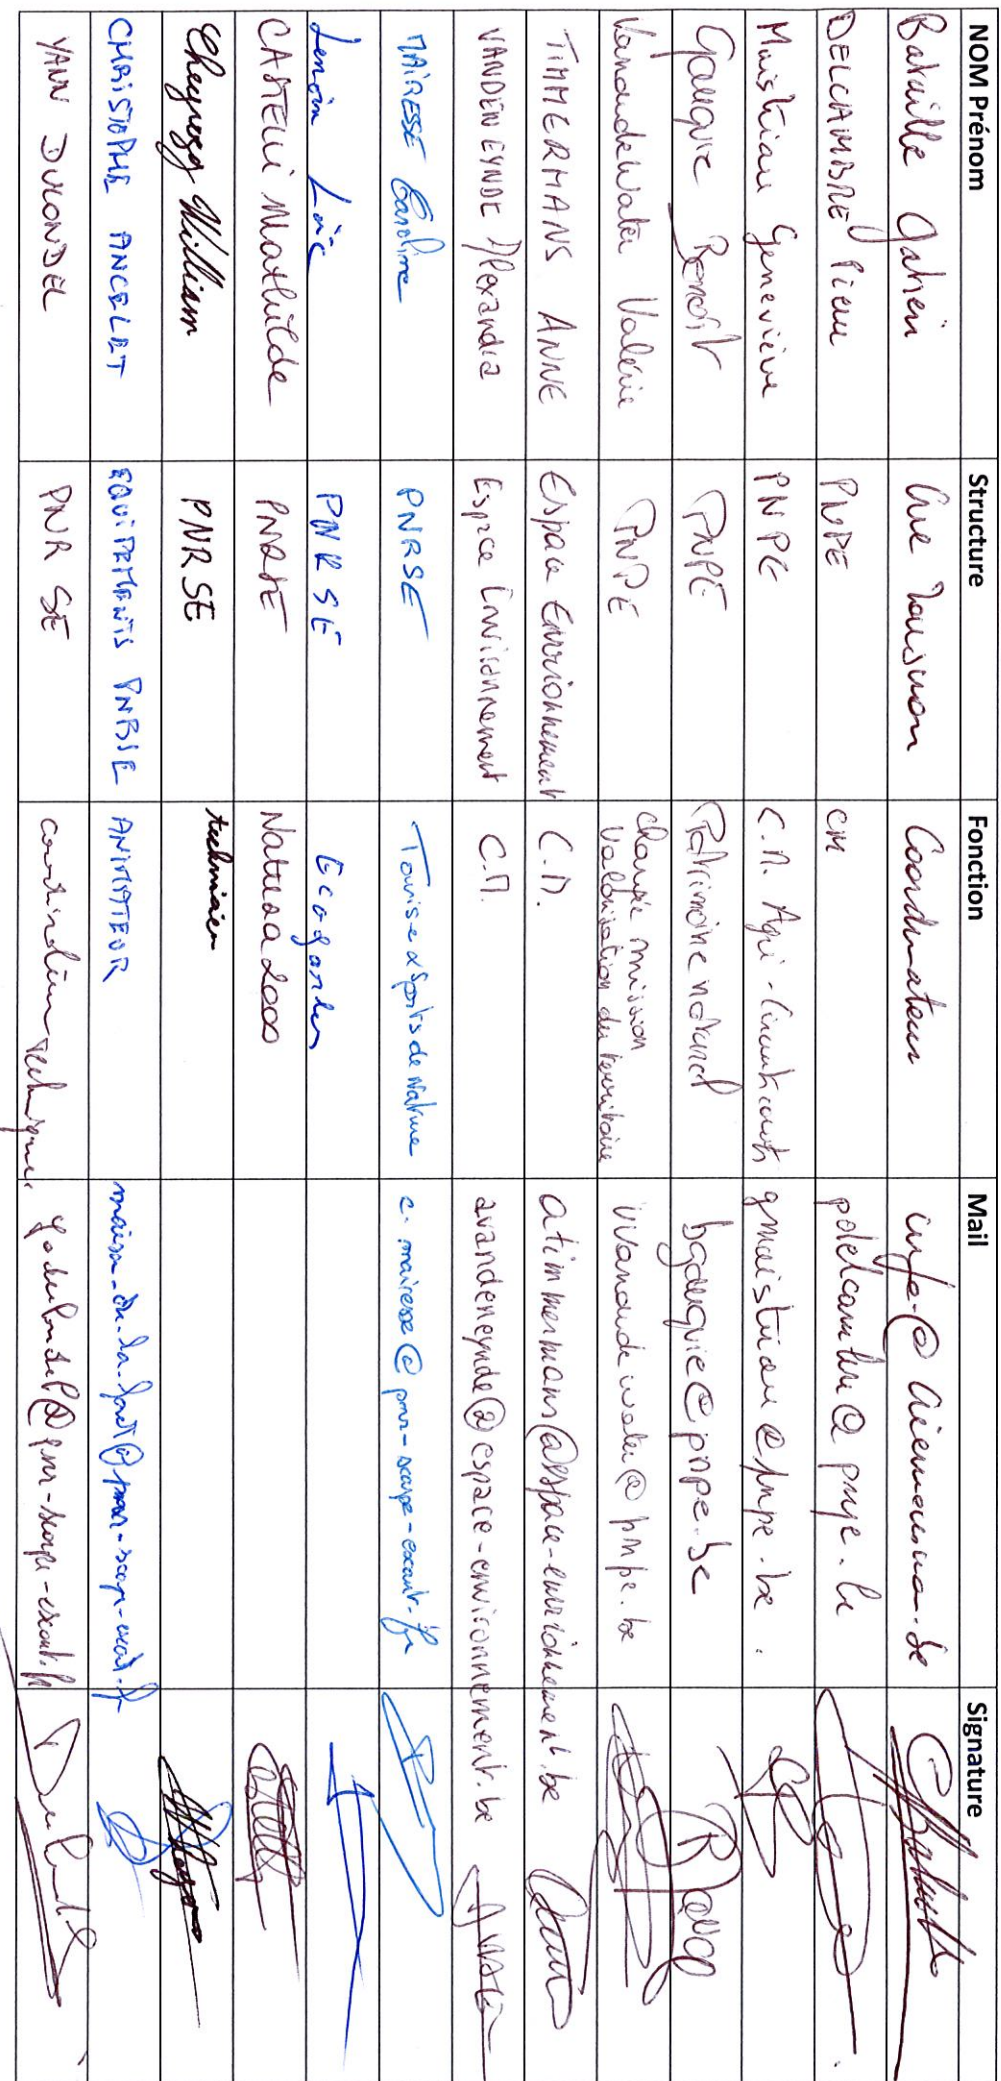 NOM Prénom Structure Fonction Mail Signature
Bataille Gatien Coordinateur
DELCAMBRE Pierre PNPE CM
Muistriau Geneviève PNPE C.M. Agri - gmuistriau@pnpe.be
Gauquie Benoit PNPE Patrimoine naturel bgauquie@pnpe.be
Vanaudewater Valérie PNPE chargée mission
valorisation du territoire vvanaudewater@pnpe.be
TIMMERMANS ANNE Espace Environnement C.M. atimmermans@espace-environnement.be
VANDEN EYNDE Alexandra Espace Environnement C.M. avandeneynde@espace-environnement.be
MAIRESSE Caroline PNRSE Tourisme & Sports de Nature c.mairesse@pnr-scarpe-escaut.fr
Lenoin Loïc PNRSE Ecogarde
CASTELLI Mathilde PNRSE Natura 2000
William PNRSE technicien
CHRISTOPHE ANCELET EQUIPEMENTS PNRSE ANIMATEUR maison-de-la-foret@pnr-scarpe-escaut.fr
YANN PNR SE technique @pnr-scarpe-escaut.fr